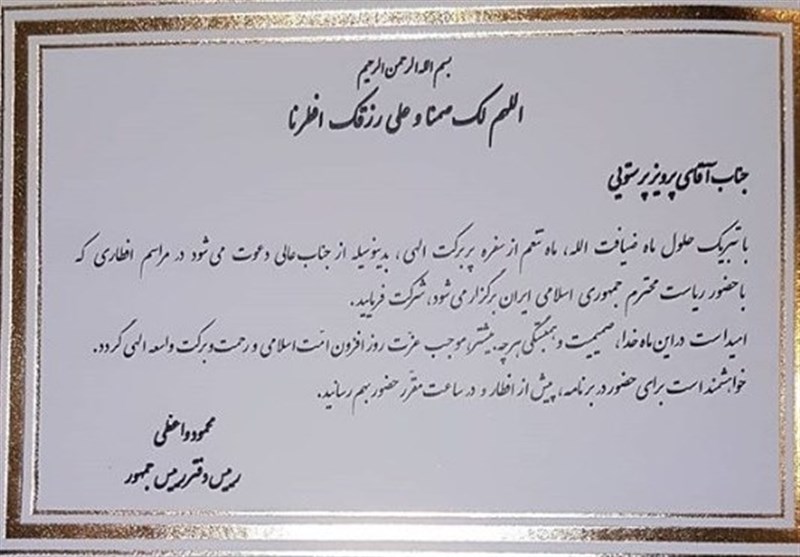 بسم الله الرحمن الرحیم
اللهم لک صمنا و علی رزقک افطرنا
جناب آقای پرویز پرستویی
با تبریک حلول ماه ضیافت الله، ماه تنعم از سفره پر برکت الهی، بدینوسیله از جناب عالی دعوت می شود در مراسم افطاری که
با حضور ریاست محترم جمهوری اسلامی ایران برگزار می شود، شرکت فرمایید.
امید است در این ماه خدا، صمیمیت و همبستگی هرچه بیشتر، موجب عزت روز افزون امت اسلامی و رحمت و برکت واسعه الهی گردد.
خواهشمند است برای حضور در برنامه، پیش از افطار و در ساعت مقرّر حضور بهم رسانید.
محمود واعظی
رییس دفتر رییس جمهور